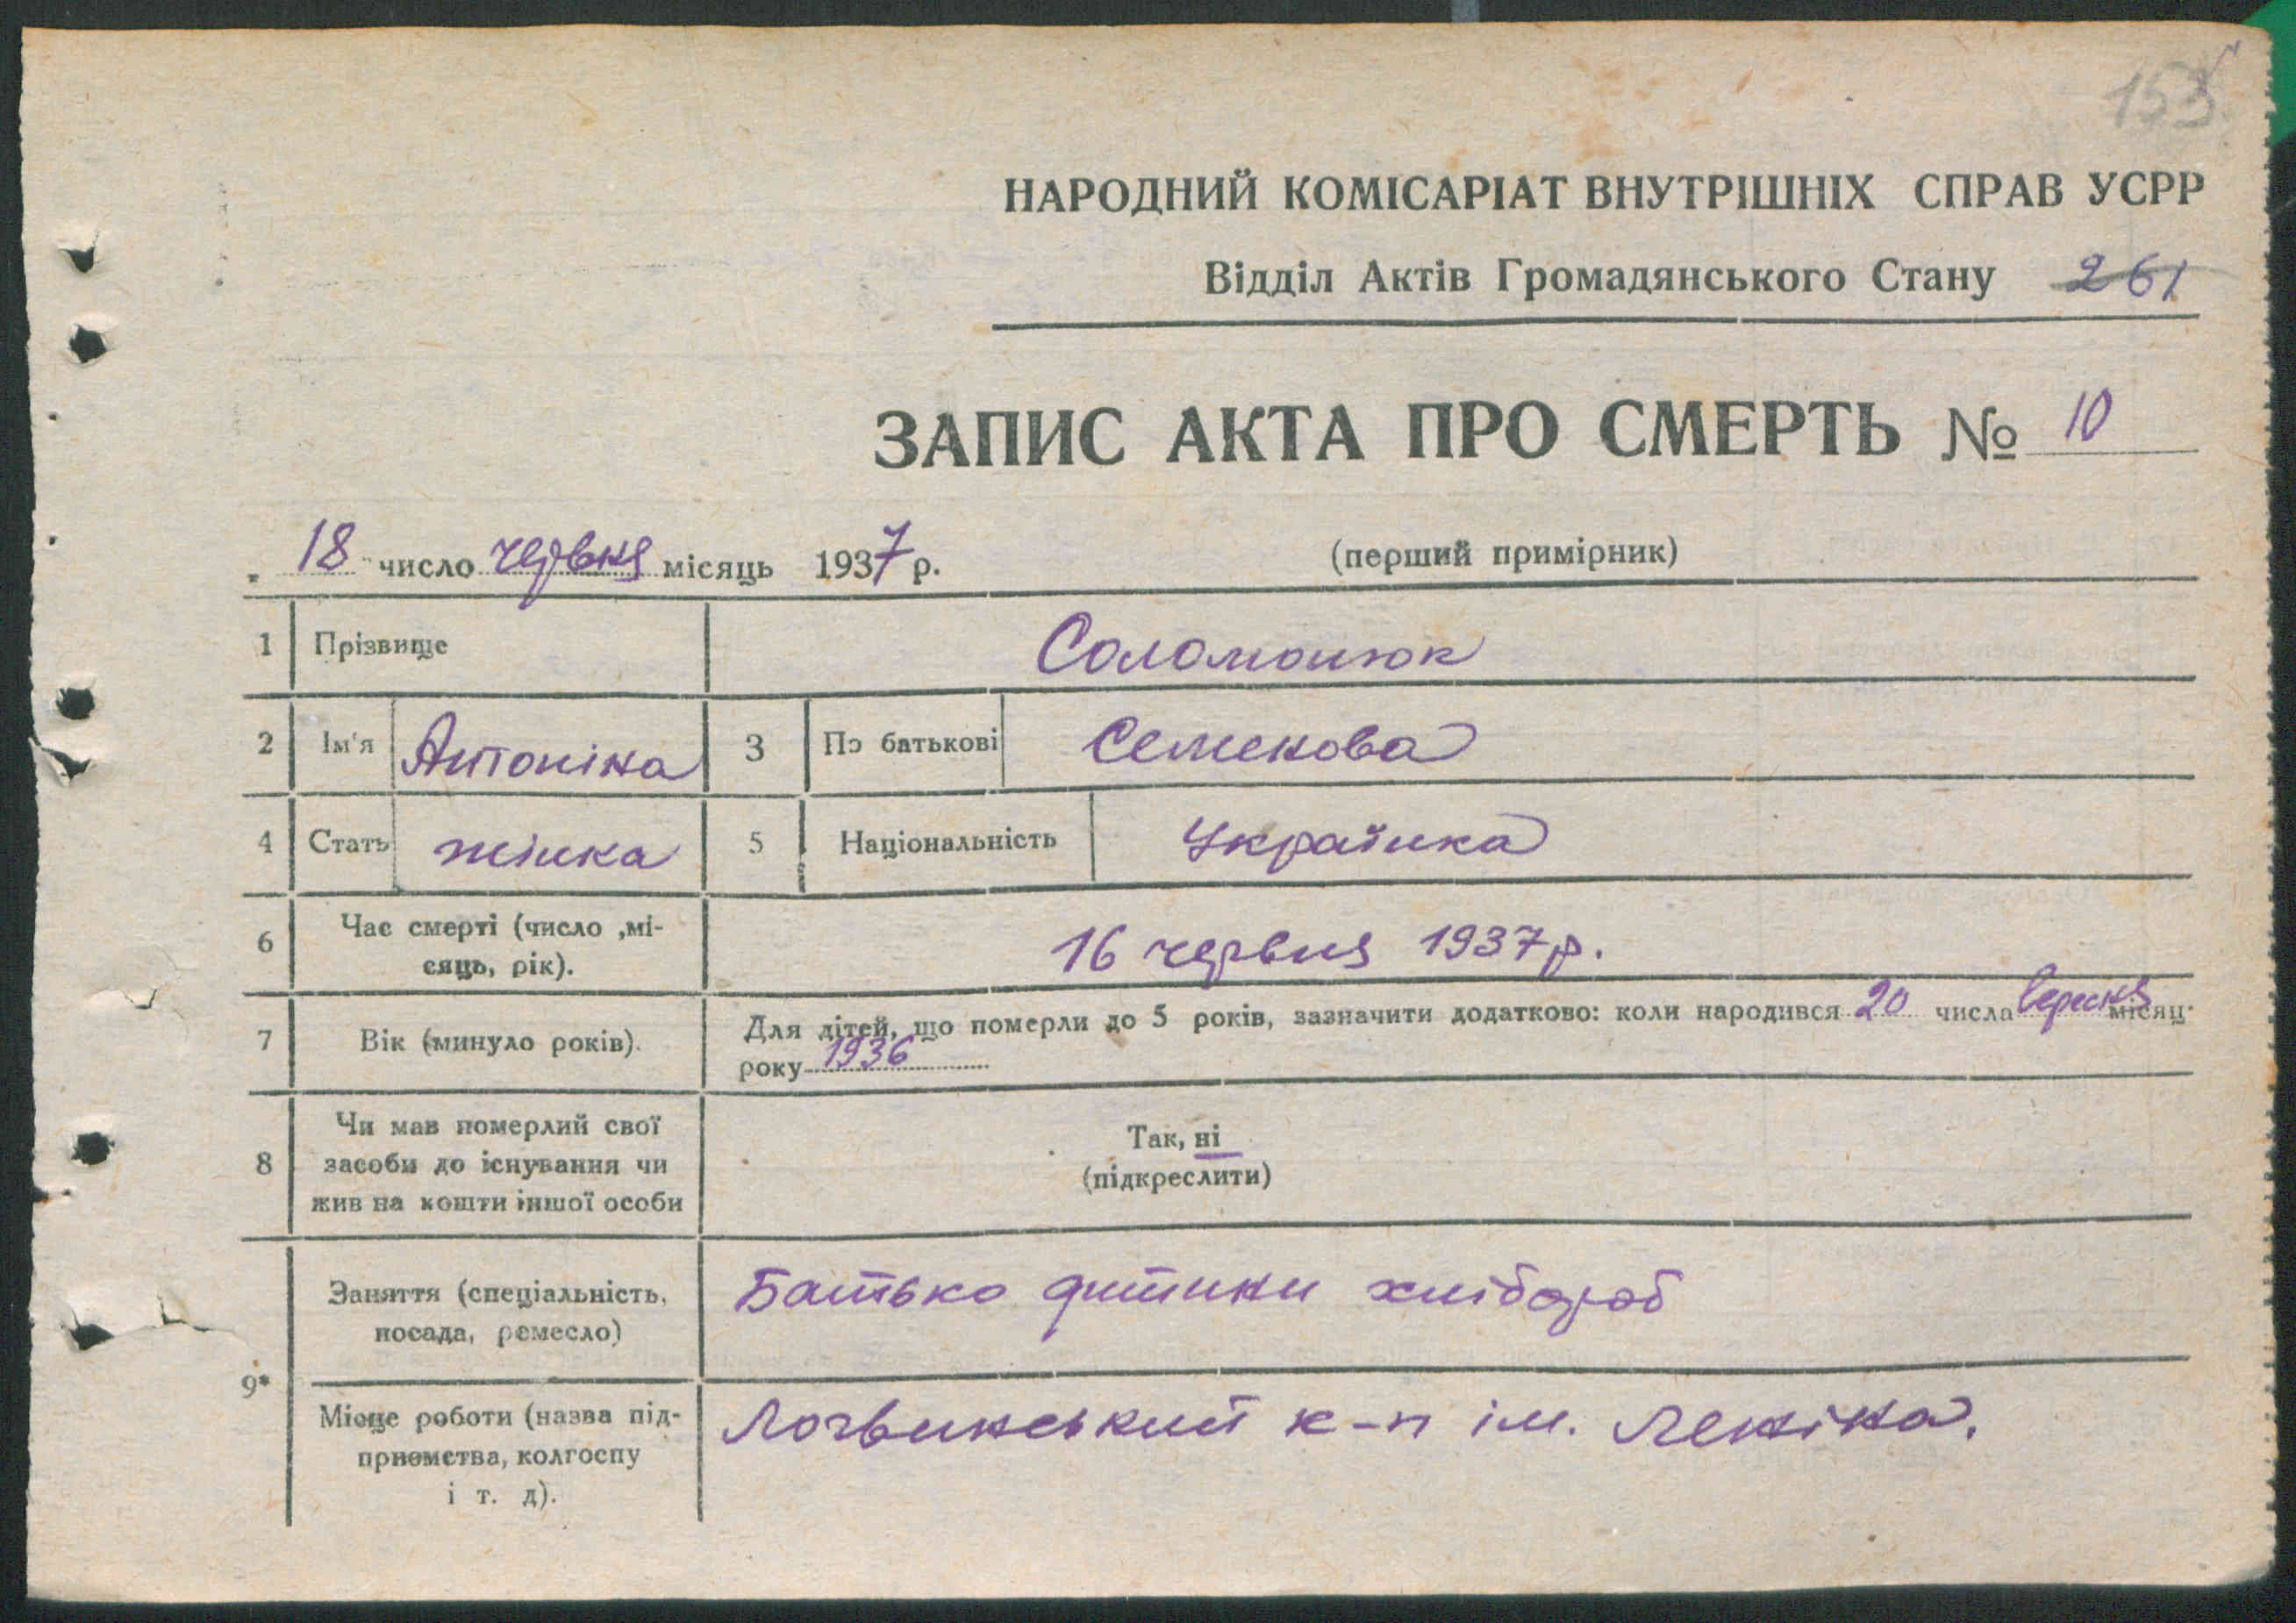 153
НАРОДНИЙ КОМІСАРІАТ ВНУТРІШНІХ СПРАВ УСРР
Відділ Актів Громадянського Стану 261
ЗАПИС АКТА ПРО СМЕРТЬ № 10
18 число червня місяць 1937 р. (перший примірник)
1 Прізвище Соломонюк
2 Ім'я Антоніна 3 По батькові Семенова
4 Стать жінка 5 Національність Українка
6 Час смерті (число ,мі-
сяць, рік). 16 червня 1937 р.
7 Вік (минуло років). Для дітей, що померли до 5 років, зазначити додатково: коли народився 20 числа вересня місяц
року 1936
8 Чи мав померлий свої
засоби до існування чи
жив на кошти іншої особи
Так, ні
(підкреслити)
9*
Заняття (спеціальність,
посада, ремесло) Батько дитини хлібороб
Місце роботи (назва під-
приємства, колгоспу
і т. д). Логвинський к-п ім. Леніна.